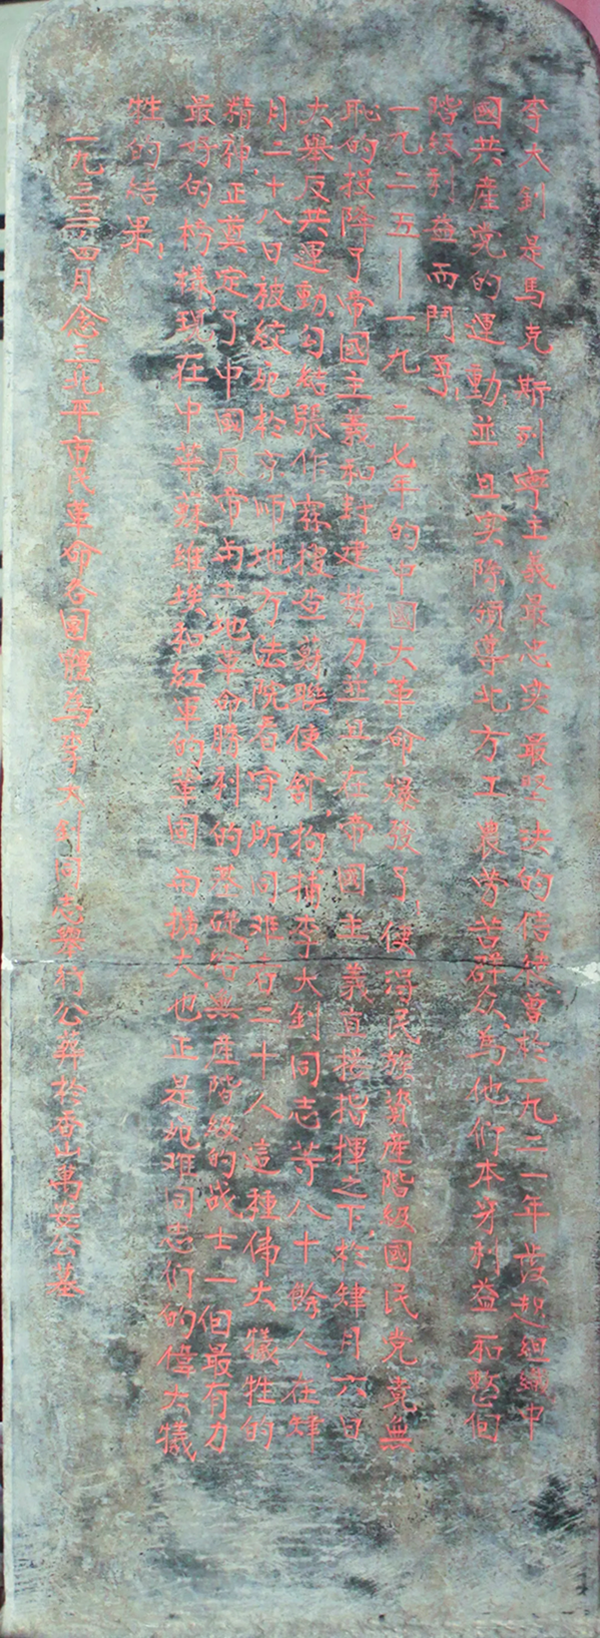 李大釗是馬克斯列寧主義最忠实最堅决的信徒,曾於一九二一年發起組織中
國共產党的運動,並且实际領導北方工農勞苦群众,為他们本身利益和整個
階級利益而鬥爭,
一九二五——一九二七年的中國大革命爆發了,使得民族資產階級國民党竟無
恥的投降了帝國主義和封建勢力,並且在帝國主義直接指揮之下,於肆月六日
大舉反共運動,勾結張作霖搜查蘇聯使館,拘捕李大釗同志等八十餘人,在肆
月二十八日被絞死於京師地方法院看守所,同难者二十人,這種偉大犧牲的
精神,正奠定了中国反帝与土地革命勝利的基礎,給無產階級的战士一個最有力
最好的榜樣,現在中華蘇維埃和紅軍的鞏固而擴大,也正是死难同志们的偉大犧
牲的結果,
一九三三、四月念三北平市民革命各團體為李大釗同志舉行公葬於香山萬安公墓